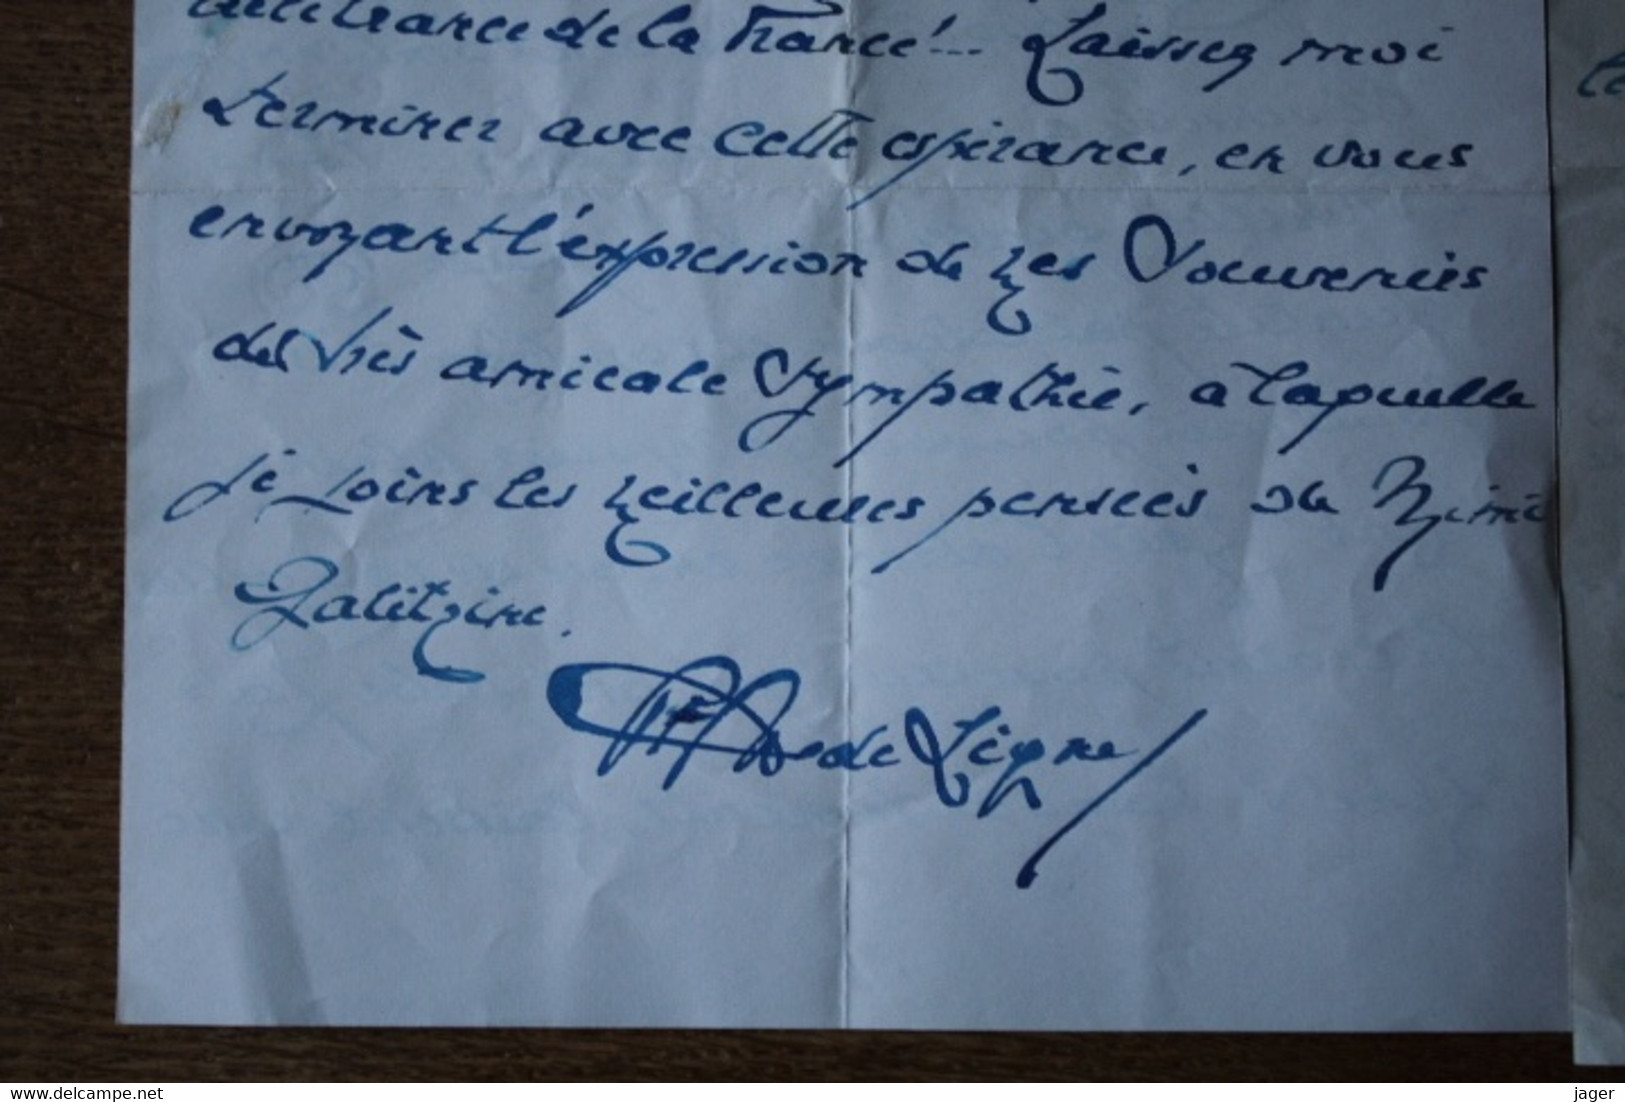 délivrance de la France!... Laissez moi
terminer avec cette espérance, en vous
envoyant l'expression de mes Souvenirs
de très amicale Sympathie, à laquelle
je joins les meilleures pensées de Mimi
Galitzine.
de Ligne
le
www.delcampe.net
jager